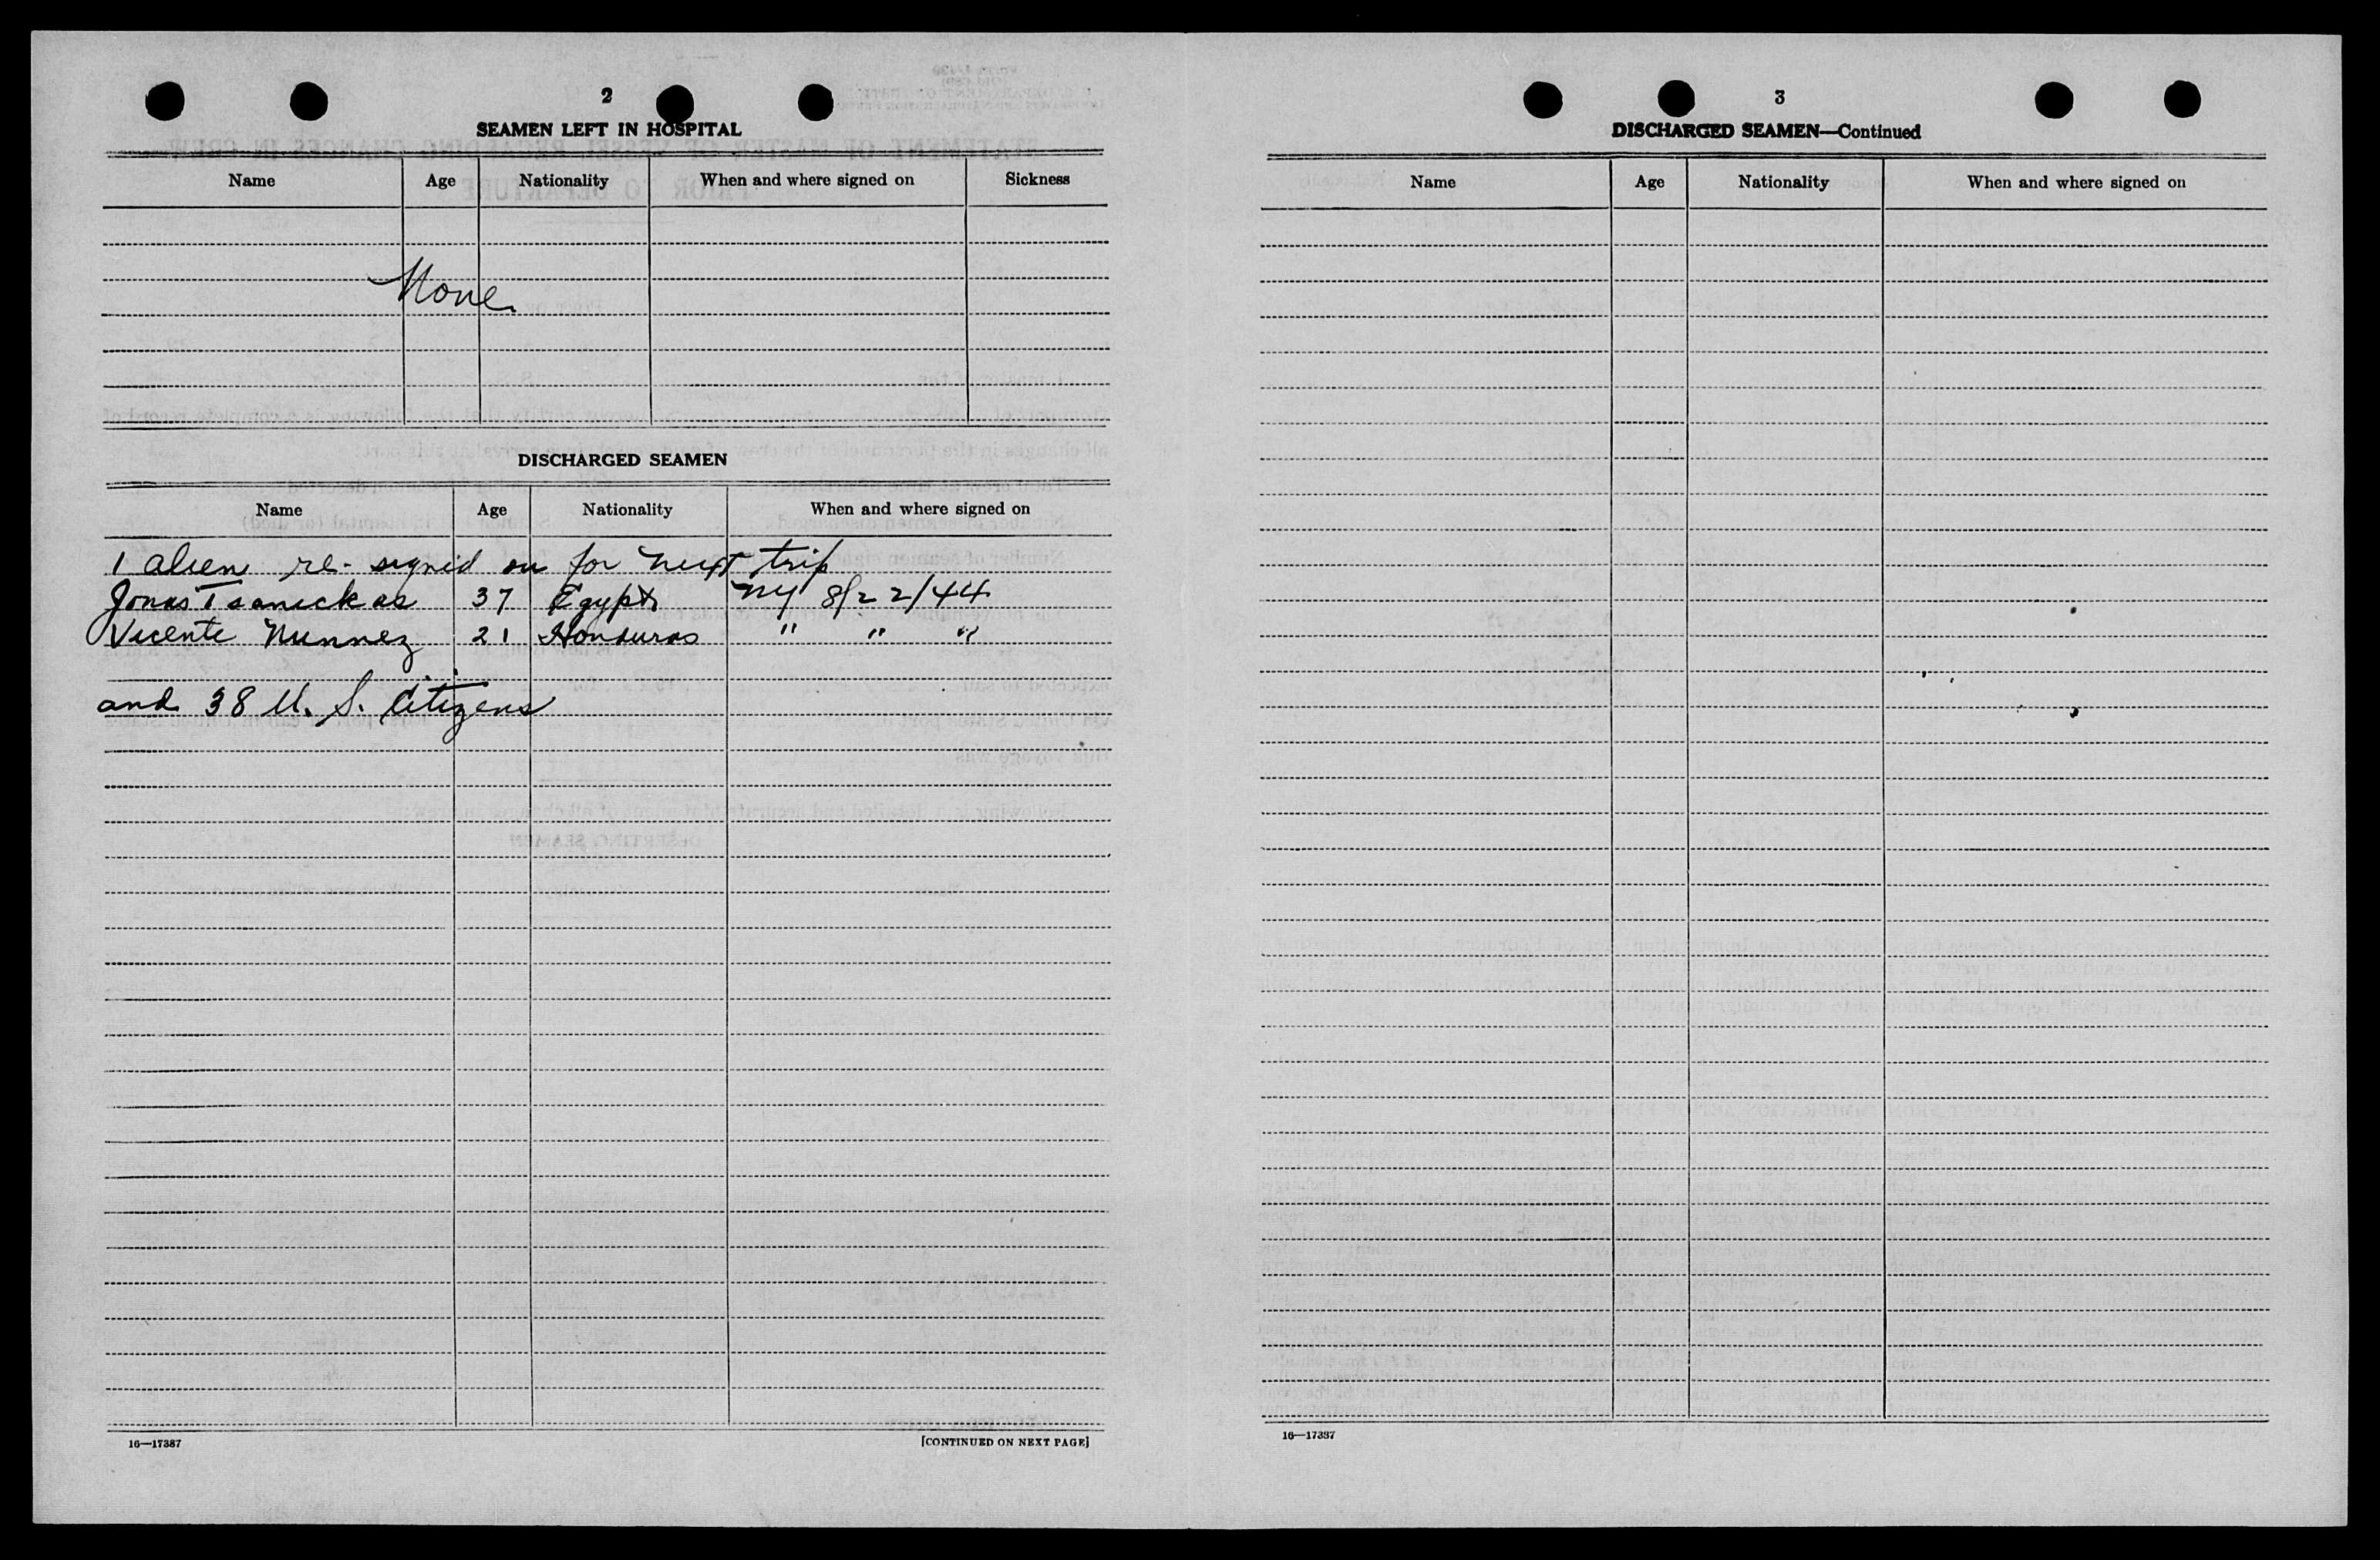 2
SEAMEN LEFT IN HOSPITAL
Name Age Nationality When and where signed on Sickness
None
DISCHARGED SEAMEN
Name Age Nationality When and where signed on
1 alien re-signed on for next trip
Jonas Tsanickas 37 Egypt NY 8/22/44
Vicente Nunnez 21 Honduras " " "
and 38 U. S. Citizens
16—17387 [CONTINUED ON NEXT PAGE]
3
DISCHARGED SEAMEN—Continued
Name Age Nationality When and where signed on
16—17387